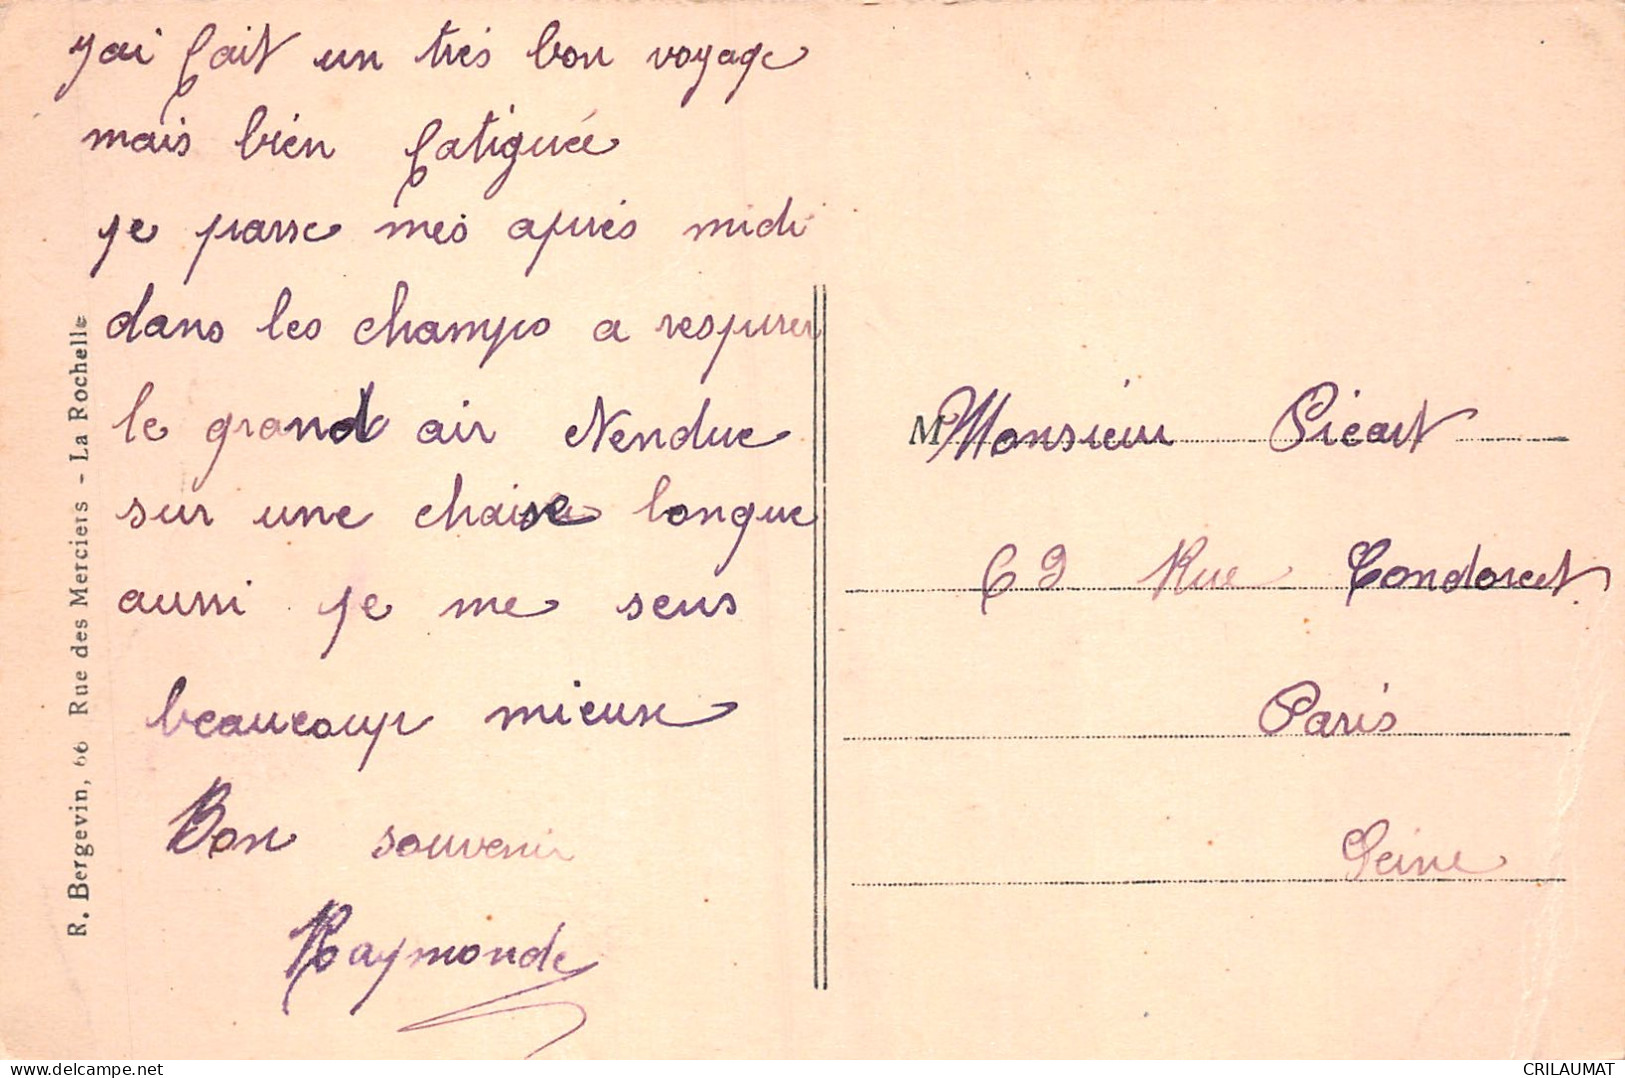 j'ai fait un très bon voyage
mais bien fatiguée
je passe mes après midi
dans les champs a respirer
le grand air étendue
sur une chaise longue
aussi je me sens
beaucoup mieux
Bon souvenir
Raymonde
R. Bergevin, 66 Rue des Merciers - La Rochelle
M Monsieur Picart
69 Rue Condorcet
Paris
Seine
CRILAUMAT